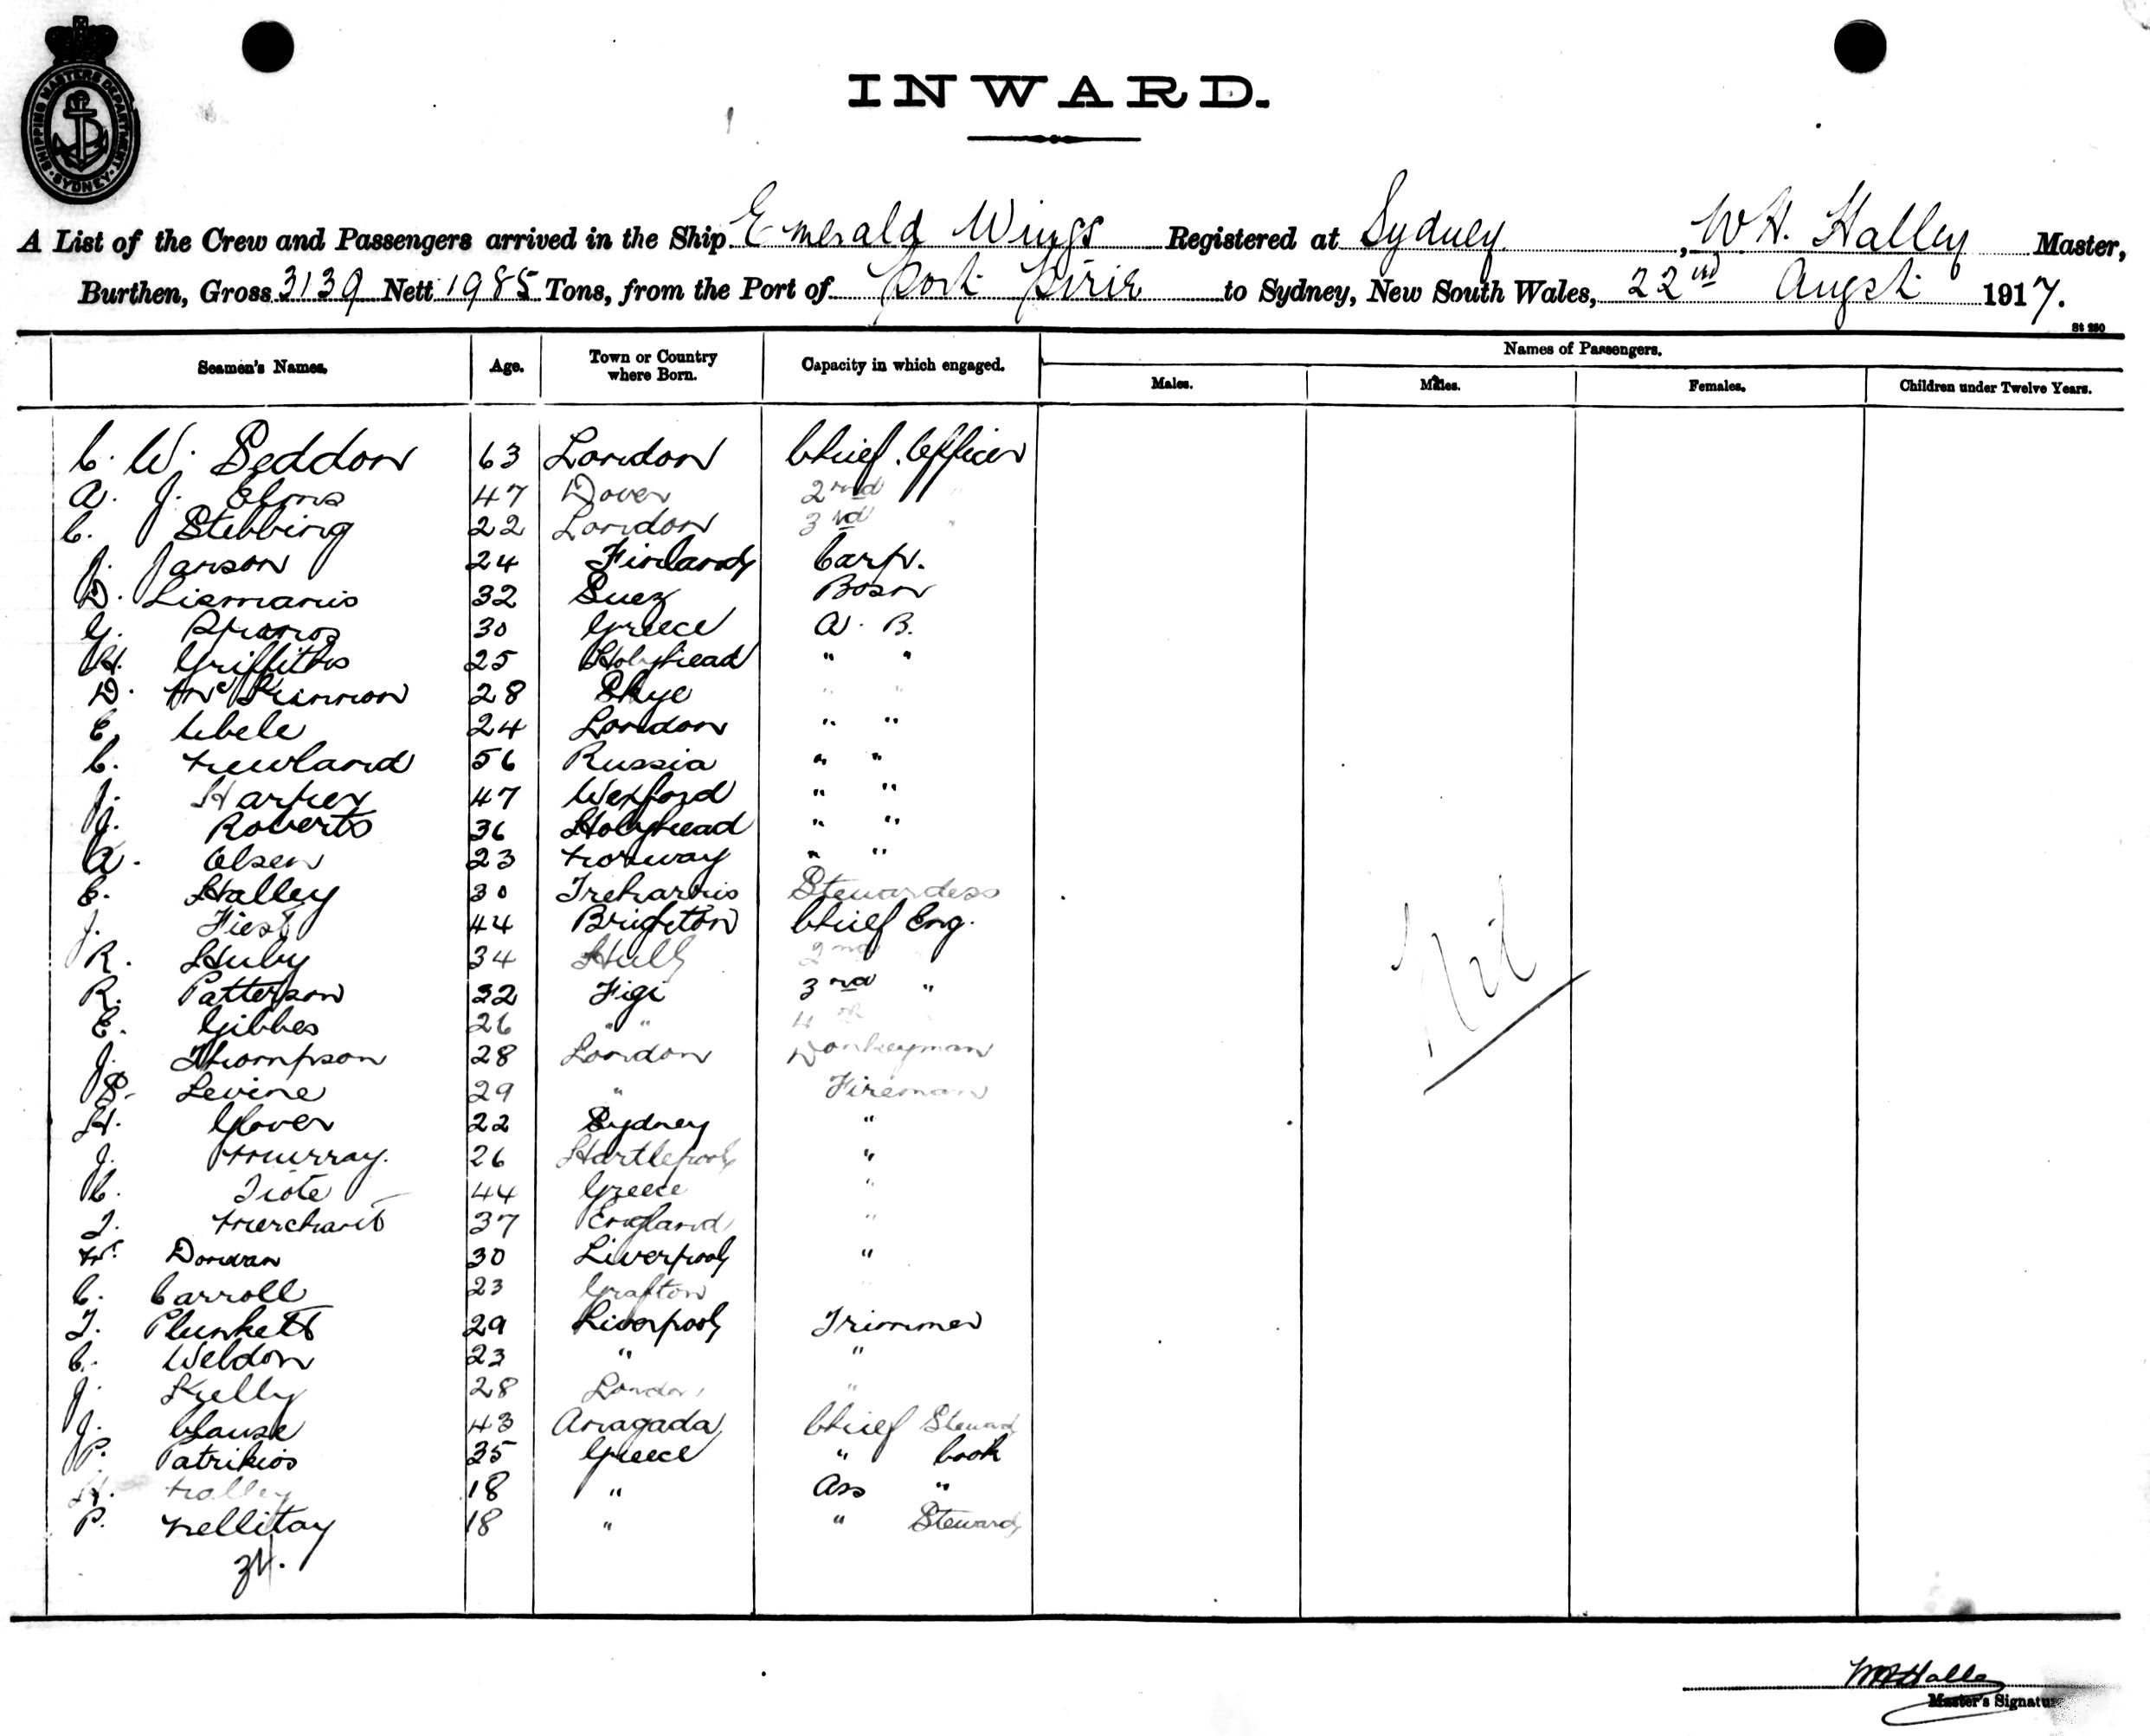 SHIPPING MASTERS DEPARTMENT SYDNEY
INWARD.
A List of the Crew and Passengers arrived in the Ship Emerald Wings Registered at Sydney, W H. Halley Master,
Burthen, Gross 3139 Nett 1985 Tons, from the Port of Port Pirie to Sydney, New South Wales, 22nd Augst 1917.
St 250
Seamen's Names. Age. Town or Country where Born. Capacity in which engaged. Names of Passengers.
Males. Males. Females. Children under Twelve Years.
C. W. Seddon 63 London Chief Officer
A. J. Elms 47 Dover 2nd "
C. Stebbing 22 London 3rd "
J. Janson 24 Finland Carp.
D. Liemanis 32 Suez Bosn
G. 30 Greece A. B.
H. Griffiths 25 Holyhead " "
D. McKinnon 28 Skye " "
E. Ubele 24 London " "
C. Newland 56 Russia " "
J. Harper 47 Wexford " "
J. Roberts 36 Holyhead " "
A. Olsen 23 Norway " "
E. Halley 30 Treharris Stewardess
J. Fiest 44 Brighton Chief Eng.
R. Huby 34 Hull 2nd
R. Patterson 32 Figi 3rd "
E. Gibbes 26 " " 4th
J. Thompson 28 London Donkeyman
S. Levine 29 " Fireman
H. Glover 22 Sydney "
J. Murray. 26 Hartlepool "
C. Tiote 44 Greece "
T. Merchant 37 England "
M. Donovan 30 Liverpool "
C. Carroll 23 Grafton
T. Plunkett 29 Liverpool Trimmer
C. Weldon 23 " "
J. Kelly 28 London "
J. Clause 43 Anagada Chief Steward
P. Patrikios 35 Greece " Cook
H. 18 " Ass "
P. Mellitay 18 " " Steward
34.
Nil
W H Halley
Master's Signature